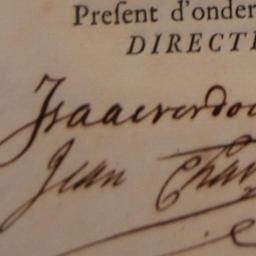 Preſent d'onder
DIRECT
Isaac verdo
Jean Cha